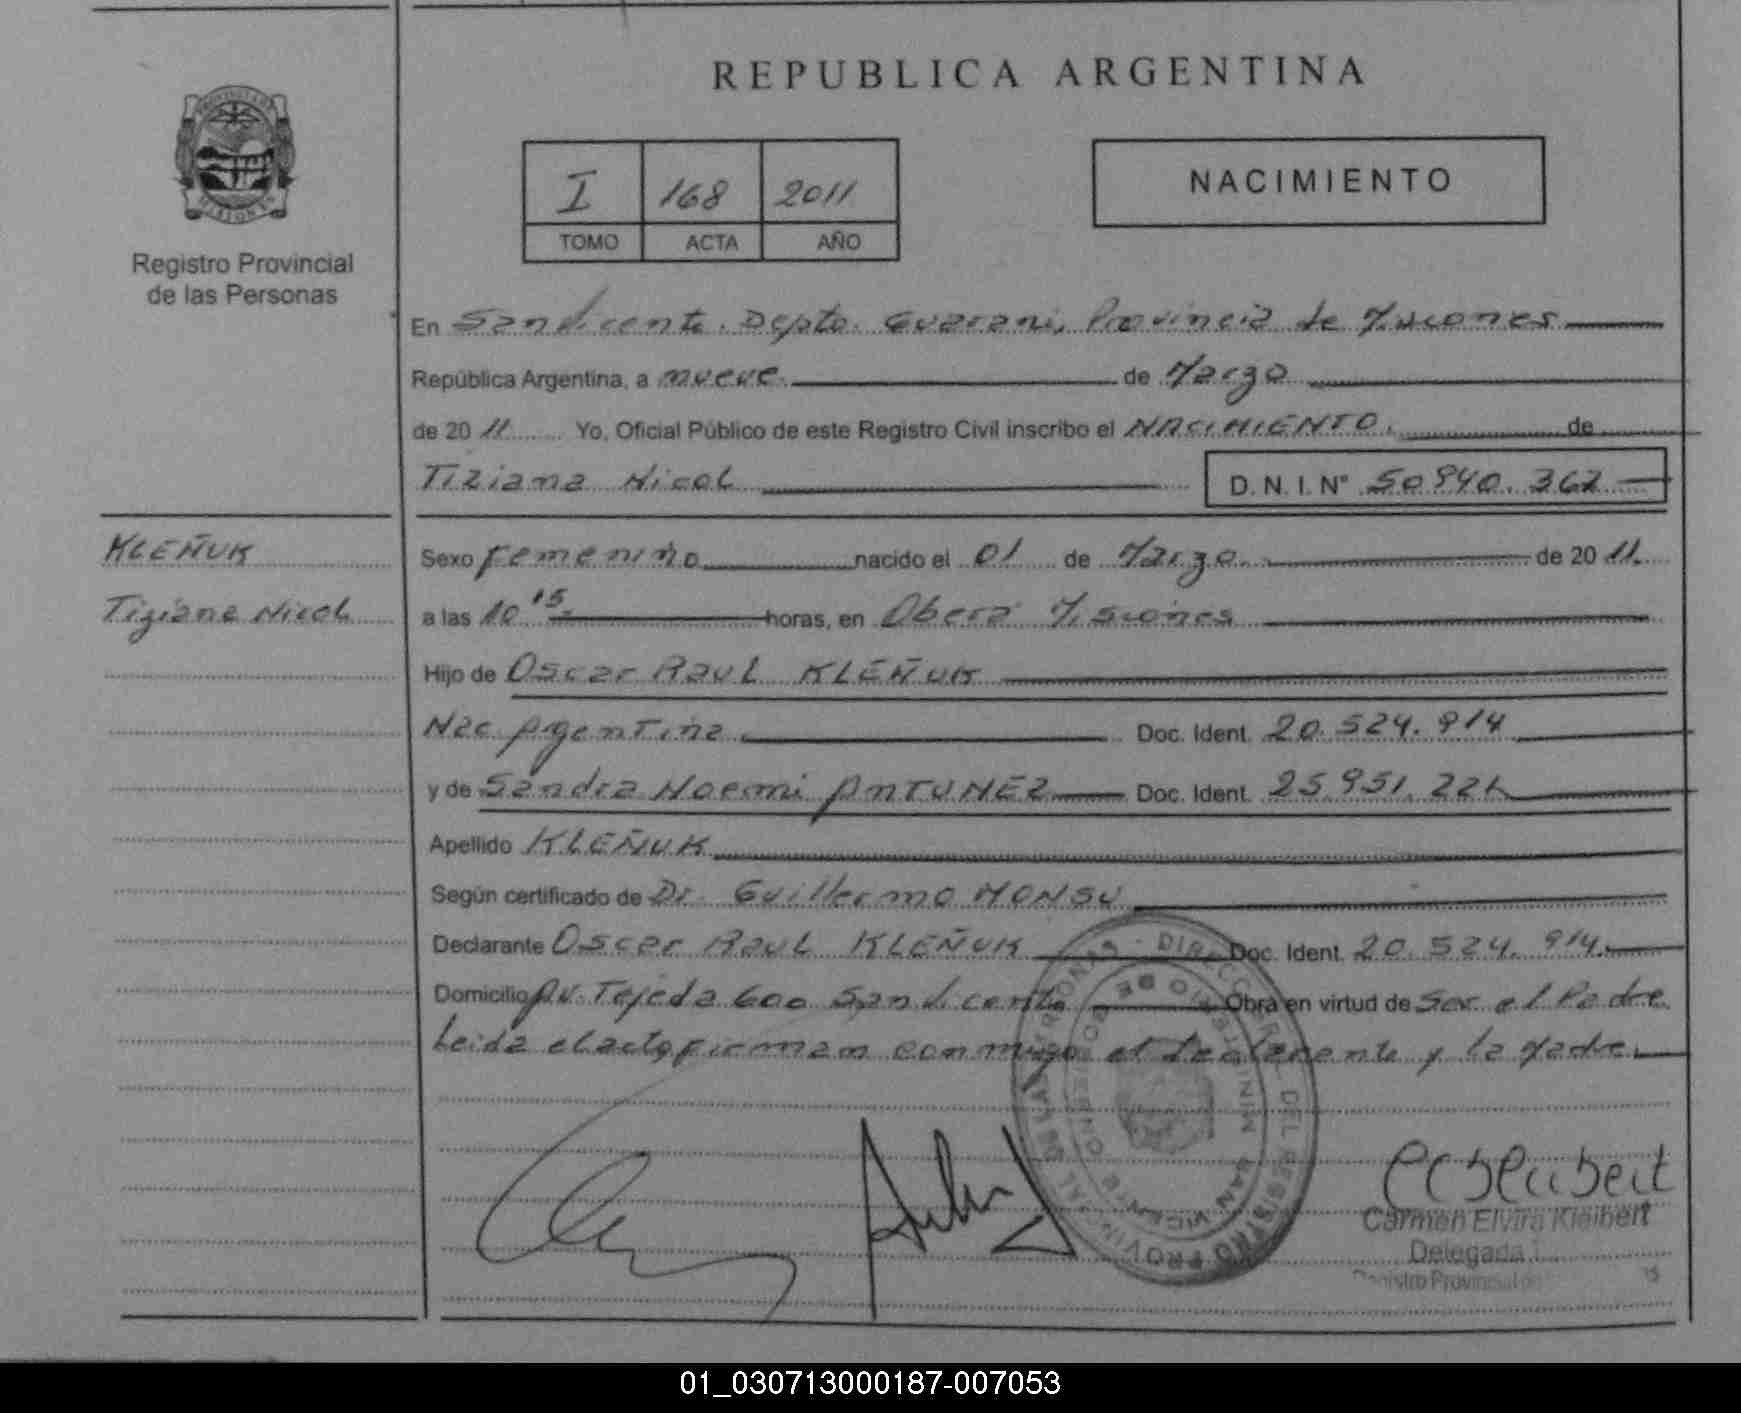 REPUBLICA ARGENTINA
I 168 2011
TOMO ACTA AÑO
NACIMIENTO
Registro Provincial
de las Personas
En San Vicente. Depto. Guarani, Provincia de Misiones
República Argentina, a nueve de Marzo
de 2011 Yo, Oficial Público de este Registro Civil inscribo el NACIMIENTO. de
Tiziana Nicol D. N. I. Nº 50.940.362
KLEÑUK
Tiziana Nicol
Sexo femenino nacido el 01 de Marzo. de 2011.
a las 10 15 horas, en Oberá Misiones
Hijo de Oscar Raul KLEÑUK
Nac. Argentina Doc. Ident. 20.524.914
y de Sandra Noemi ANTUNEZ Doc. Ident. 25.951.221
Apellido KLEÑUK
Según certificado de Dr. Guillermo MONSU
Declarante Oscar Raul KLEÑUK Doc. Ident. 20.524.914.
Domicilio Av. Tejeda 600 San Vicente Obra en virtud de Ser el Padre
Leida el acta firman conmigo el declarante y la Madre.
DIRECC. GRAL. DEL REGISTRO PROVINCIAL DE LAS PERSONAS
MINISTERIO DE GOBIERNO
SAN VICENTE
Carmen Elvira Kleibert
Delegada
Registro Provincial de
01_030713000187-007053